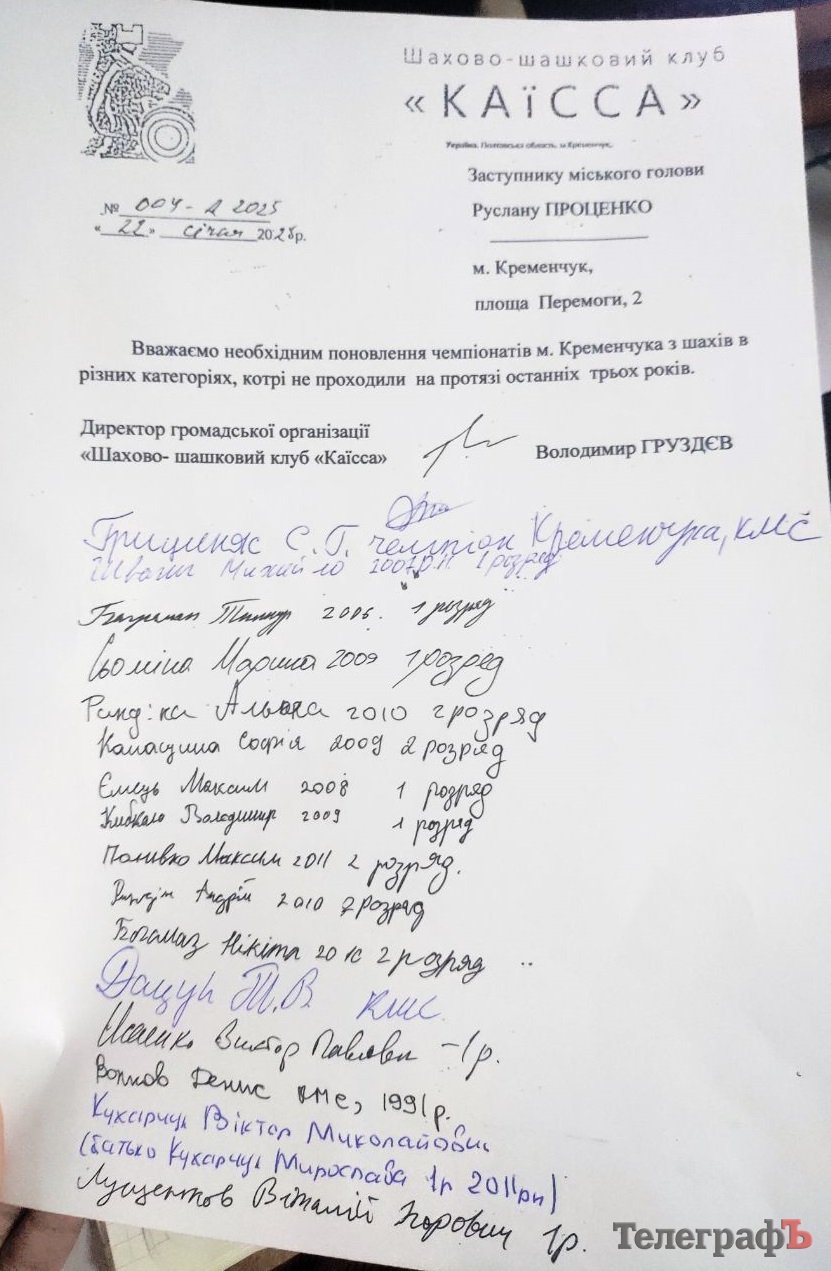 Шахово-шашковий клуб
«КАЇССА»
Україна, Полтавська область, м.Кременчук,
Заступнику міського голови
№ 004-д 2025
Руслану ПРОЦЕНКО
«22» січня 2025р.
м. Кременчук,
площа Перемоги, 2
Вважаємо необхідним поновлення чемпіонатів м. Кременчука з шахів в
різних категоріях, котрі не проходили на протязі останніх трьох років.
Директор громадської організації
«Шахово- шашковий клуб «Каїсса»
Володимир ГРУЗДЄВ
С. Г. чемпіон Кременчука, КМС
Михайло 2007р.н 1 розряд
Тимур 2006. 1 розряд
Сьоміна Марина 2009 1 розряд
2010 2 розряд
Софія 2009 2 розряд
Ємець Максим 2008 1 розряд
Володимир 2009 1 розряд
Поливко Максим 2011 2 розряд.
Андрій 2010 2 розряд
Богомаз Нікіта 2010 2 розряд
Дацун Т.В. КМС
Виктор Павлович -1р.
Волков Денис кмс, 1991р.
Кухарчук Віктор Миколайович
(батько Кухарчук Мирослава 1р 2011рн)
Віталій Ігорович 1р.
ТелеграфЪ